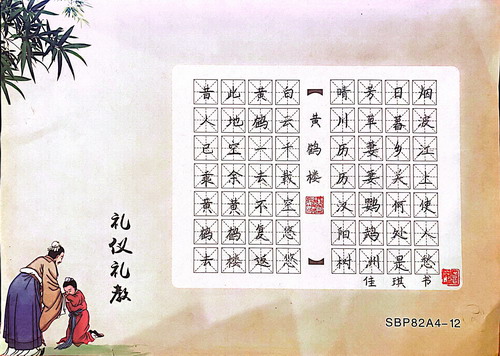 昔人已乘黄鹤去
此地空余黄鹤楼
黄鹤一去不复返
白云千载空悠悠
【黄鹤楼】
晴川历历汉阳树
芳草妻妻鹦鹉洲
日暮乡关何处是
烟波江上使人愁
佳琪书
礼仪礼教
SBP82A4-12